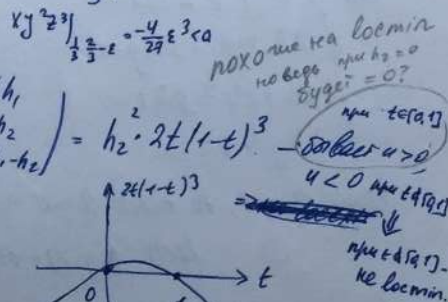 xy²z³|₁/₃ ₂/₃-ε = -4/27 ε³ < 0
похоже на locmin
но ведь при h₂=0
будет = 0?
h₁
h₂
-h₂) = h₂² · 2t(1-t)³ -
при t∈[0,1]
бывает и >0
и < 0 при t∉[0,1]
⇓
при t∉[0,1] -
не locmin
2t(1-t)³
t
0